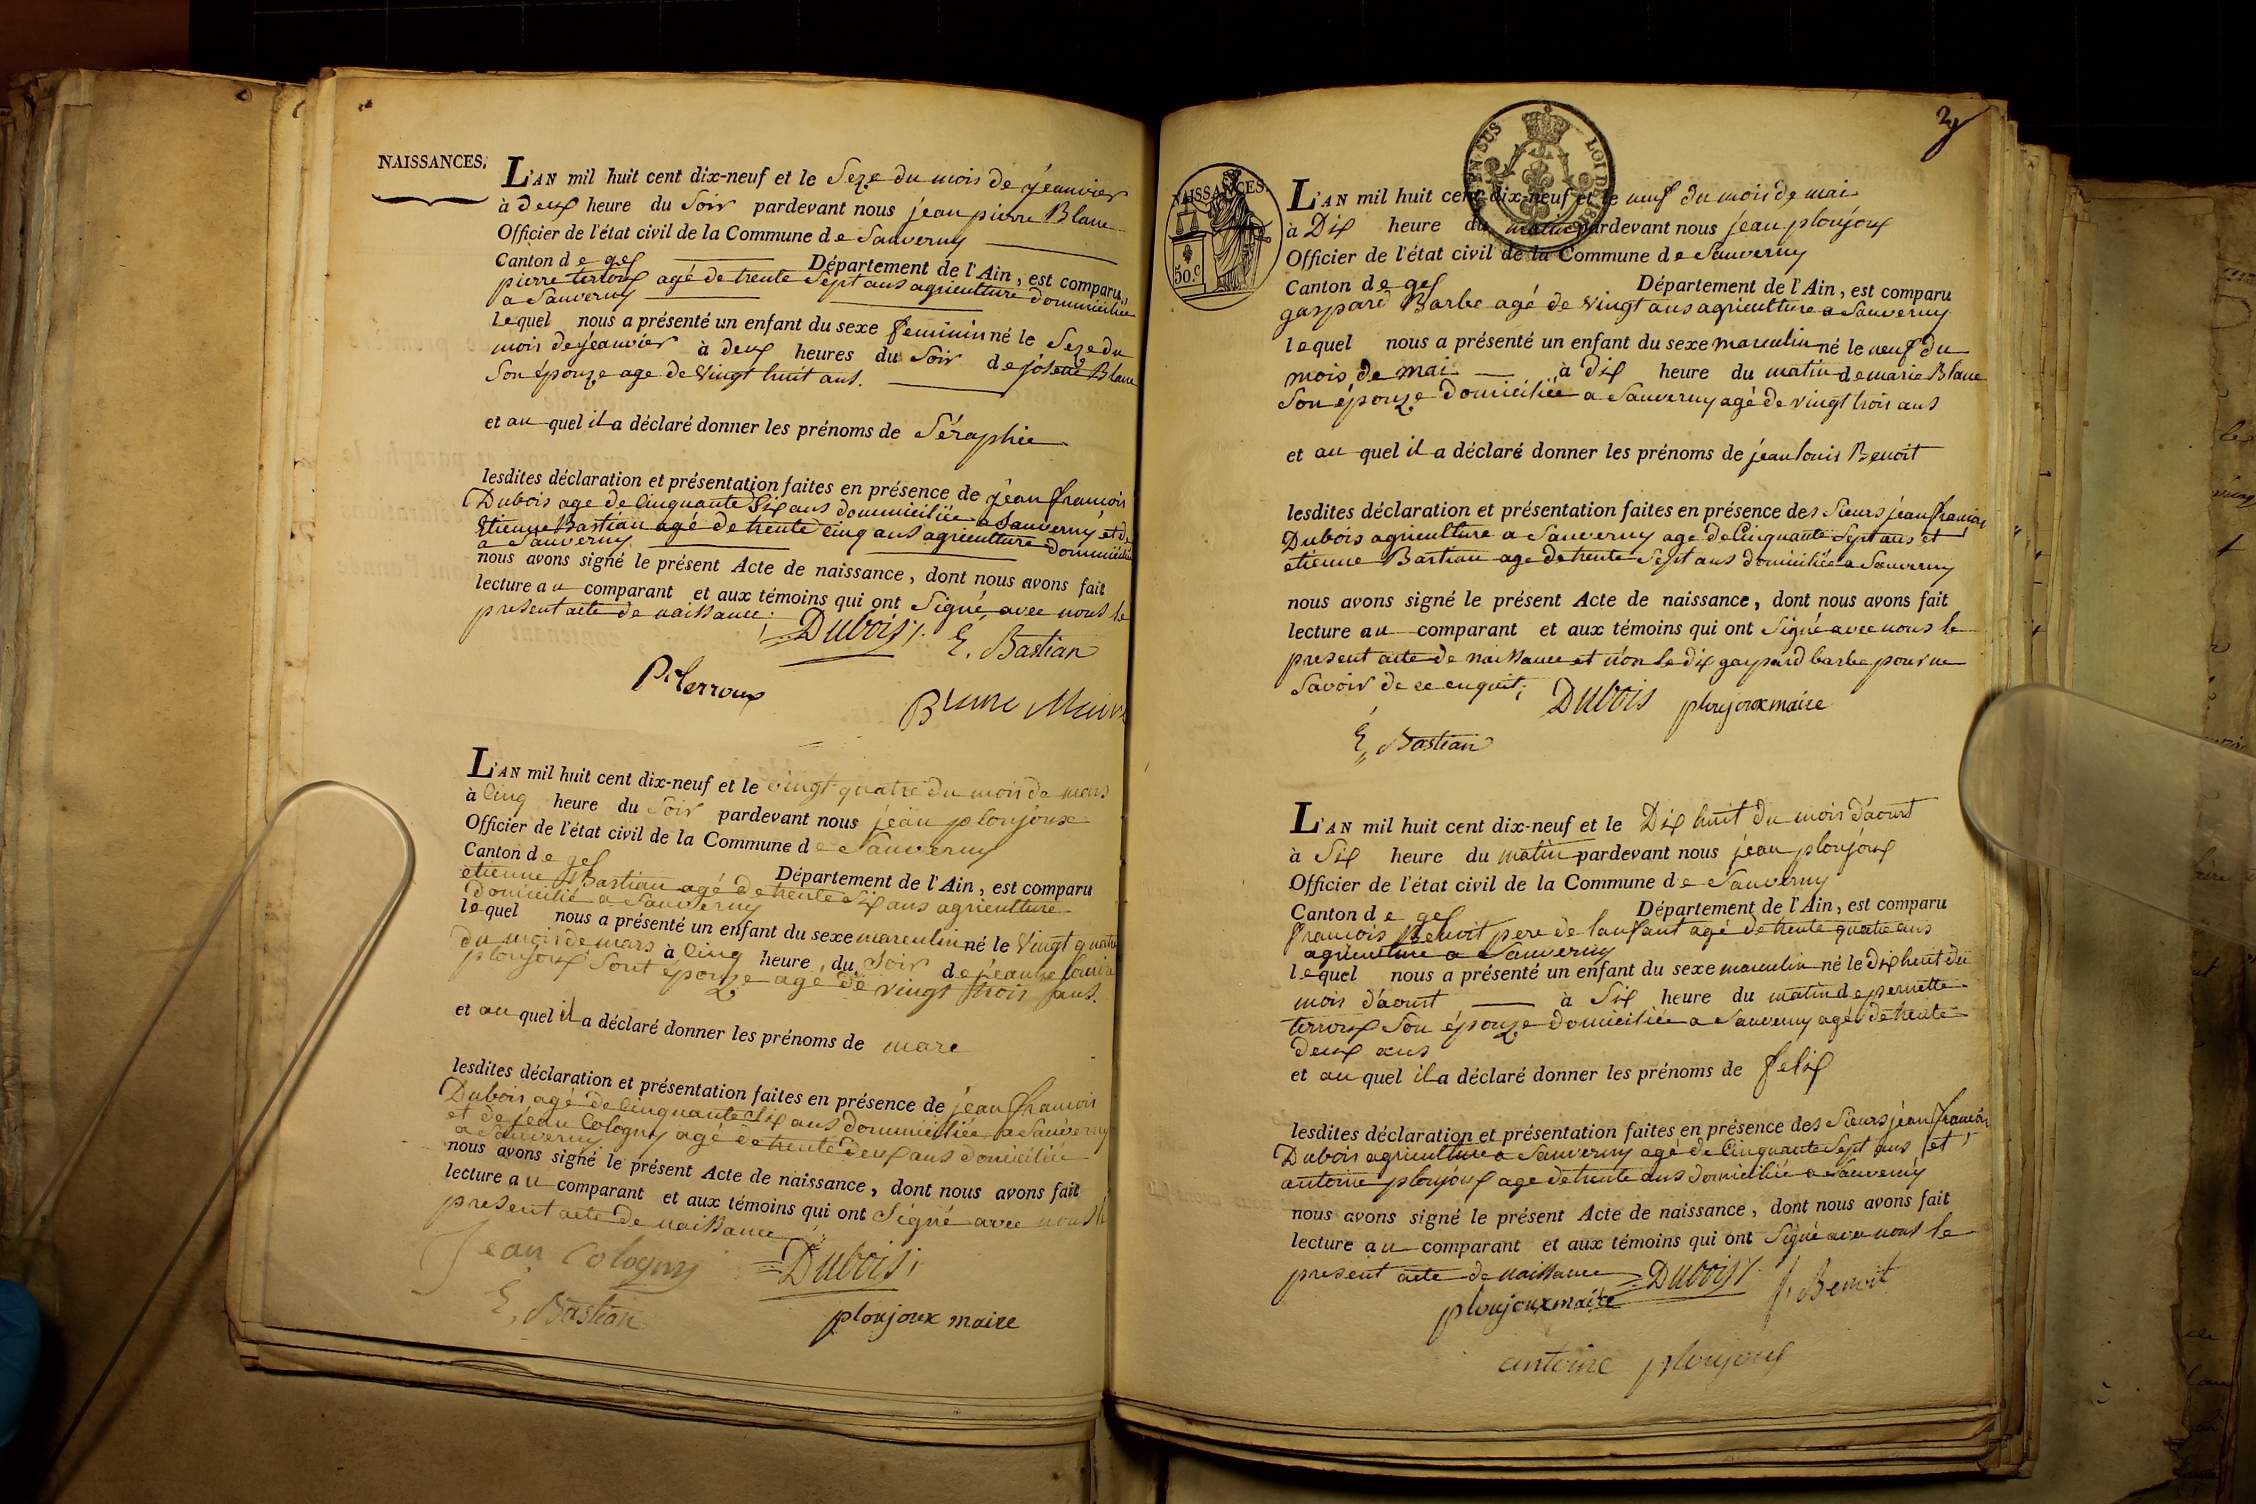 NAISSANCES.
L'AN mil huit cent dix-neuf et le Seze du mois de jeanvier
à deux heure du Soir pardevant nous jean pierre Blanc
Officier de l'état civil de la Commune de Sauverny
Canton de gex Département de l'Ain, est comparu,
pierre terroux agé de trente Sept ans agriculture dommicilié
a Sauverny
lequel nous a présenté un enfant du sexe feminin né le Seze du
mois de jeanvier à deux heures du Soir de josette Blanc
Son épouze age de Vingt huit ans.
et au quel il a déclaré donner les prénoms de Séraphie
lesdites déclaration et présentation faites en présence de jean francois
Dubois age de Cinquante Six ans dommiciliée a Sauverny et de
Etienne Bastian agé de trente cinq ans agriculture dommicilié
a Sauverny
nous avons signé le présent Acte de naissance, dont nous avons fait
lecture au comparant et aux témoins qui ont Signé avec nous le
present acte de naissance.
Dubois E. Bastian
P. terroux
Blanc Maire
L'AN mil huit cent dix-neuf et le vingt quatre du mois de mars
à Cinq heure du Soir pardevant nous jean ploujoux
Officier de l'état civil de la Commune de Sauverny
Canton de gex Département de l'Ain, est comparu
etienne Bastian agé de trente Six ans agriculture
domicilié a Sauverny
lequel nous a présenté un enfant du sexe masculin né le Vingt quatre
du mois de mars à Cinq heure du Soir de jeanne
ploujoux Sont épouze age de vingt trois ans.
et au quel il a déclaré donner les prénoms de marc
lesdites déclaration et présentation faites en présence de jean francois
Dubois agé de Cinquante Six ans dommiciliée a Sauverny
et de jean Cologny agé de trente deux ans domiciliée
a Sauverny
nous avons signé le présent Acte de naissance, dont nous avons fait
lecture au comparant et aux témoins qui ont Signé avec nous le
present acte de naissance
Jean Cologny Dubois
E, Bastian
ploujoux maire
NAISSANCES.
50.c
L'AN mil huit cent dix-neuf et le neuf du mois de mai
à Dix heure du matin pardevant nous jean ploujoux
Officier de l'état civil de la Commune de Sauverny
Canton de gex Département de l'Ain, est comparu
gaspard Barbe agé de Vingt ans agriculture a Sauverny
lequel nous a présenté un enfant du sexe masculin né le neuf du
mois de mai à dix heure du matin de marie Blanc
Son épouze domiciliée a Sauverny agé de vingt trois ans
et au quel il a déclaré donner les prénoms de jean louis Benoit
lesdites déclaration et présentation faites en présence des Sieurs jean francois
Dubois agriculture a Sauverny age de Cinquante Sept ans et
etienne Bastian age de trente Sept ans domiciliée a Sauverny
nous avons signé le présent Acte de naissance, dont nous avons fait
lecture au comparant et aux témoins qui ont Signé avec nous le
present acte de naissance et non le dix gaspard barbe pour ne
Savoir de ce enquit;
Dubois ploujoux maire
E, Bastian
L'AN mil huit cent dix-neuf et le Dix huit du mois d'aoust
à Six heure du matin pardevant nous jean ploujoux
Officier de l'état civil de la Commune de Sauverny
Canton de gex Département de l'Ain, est comparu
francois Benoit pere de lanfant agé de trente quatre ans
agriculture a Sauverny
lequel nous a présenté un enfant du sexe masculin né le dix huit du
mois d'aoust à Six heure du matin de pernette
terroux Son épouze domiciliée a Sauverny agé de trente
deux ans
et au quel il a déclaré donner les prénoms de felix
lesdites déclaration et présentation faites en présence des Sieurs jean francois
Dubois agriculture a Sauverny agé de Cinquante Sept ans et
antoine ploujoux age de trente ans domiciliée a Sauverny
nous avons signé le présent Acte de naissance, dont nous avons fait
lecture au comparant et aux témoins qui ont Signé avec nous le
present acte de naissance
Dubois f. Benoit
ploujoux maire
antoine ploujoux